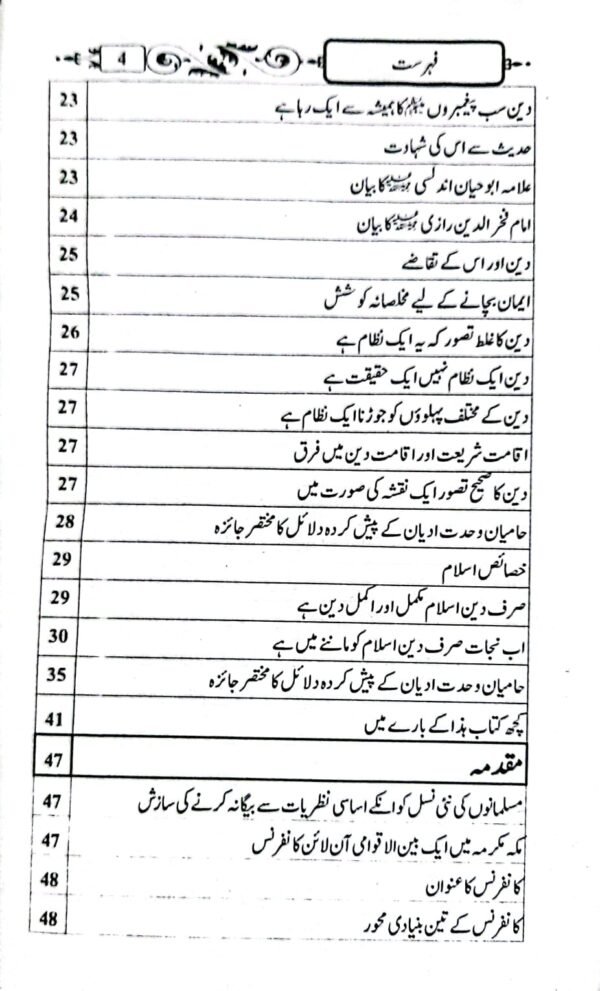 فہرست 4
دین سب پیغمبروں ﷺ کا ہمیشہ سے ایک رہا ہے 23
حدیث سے اس کی شہادت 23
علامہ ابوحیان اندلسی کا بیان 23
امام فخر الدین رازی کا بیان 24
دین اور اس کے تقاضے 25
ایمان بچانے کے لیے مخلصانہ کوشش 25
دین کا غلط تصور کہ یہ ایک نظام ہے 26
دین ایک نظام نہیں ایک حقیقت ہے 27
دین کے مختلف پہلوؤں کو جوڑنا ایک نظام ہے 27
اقامت شریعت اور اقامت دین میں فرق 27
دین کا صحیح تصور ایک نقشہ کی صورت میں 27
حامیان وحدت ادیان کے پیش کردہ دلائل کا مختصر جائزہ 28
خصائص اسلام 29
صرف دین اسلام مکمل اور اکمل دین ہے 29
اب نجات صرف دین اسلام کو ماننے میں ہے 30
حامیان وحدت ادیان کے پیش کردہ دلائل کا مختصر جائزہ 35
کچھ کتاب ہذا کے بارے میں 41
مقدمہ 47
مسلمانوں کی نئی نسل کو انکے اساسی نظریات سے بیگانہ کرنے کی سازش 47
مکہ مکرمہ میں ایک بین الاقوامی آن لائن کانفرنس 47
کانفرنس کا عنوان 48
کانفرنس کے تین بنیادی محور 48